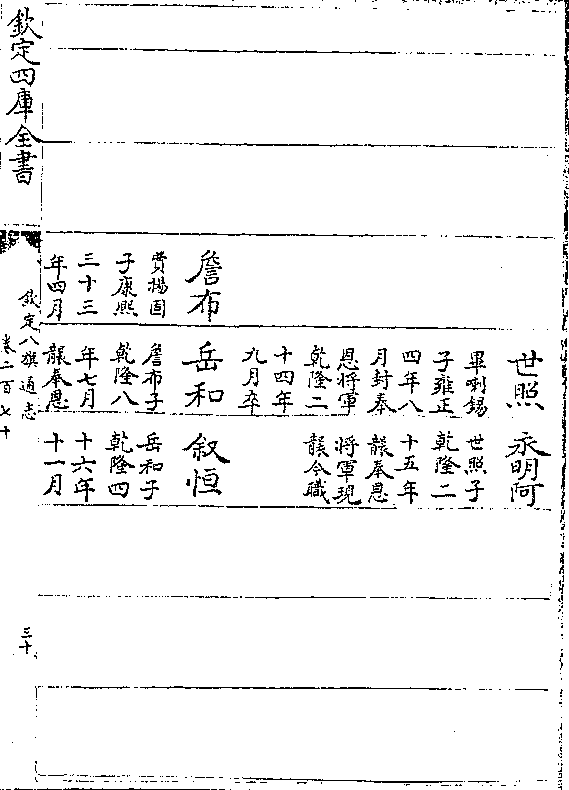 詹布
費揚固
子康熙
三十三
年四月
世照
畢喇錫
子雍正
四年八
月封奉
恩將軍
乾隆二
十四年
九月卒
岳和
詹布子
乾隆八
年七月
襲奉恩
永明阿
世照子
乾隆二
十五年
襲奉恩
將軍現
襲今職
叙恒
岳和子
乾隆四
十六年
十一月
欽定四庫全書
欽定八旗通志
卷二百七十
三十